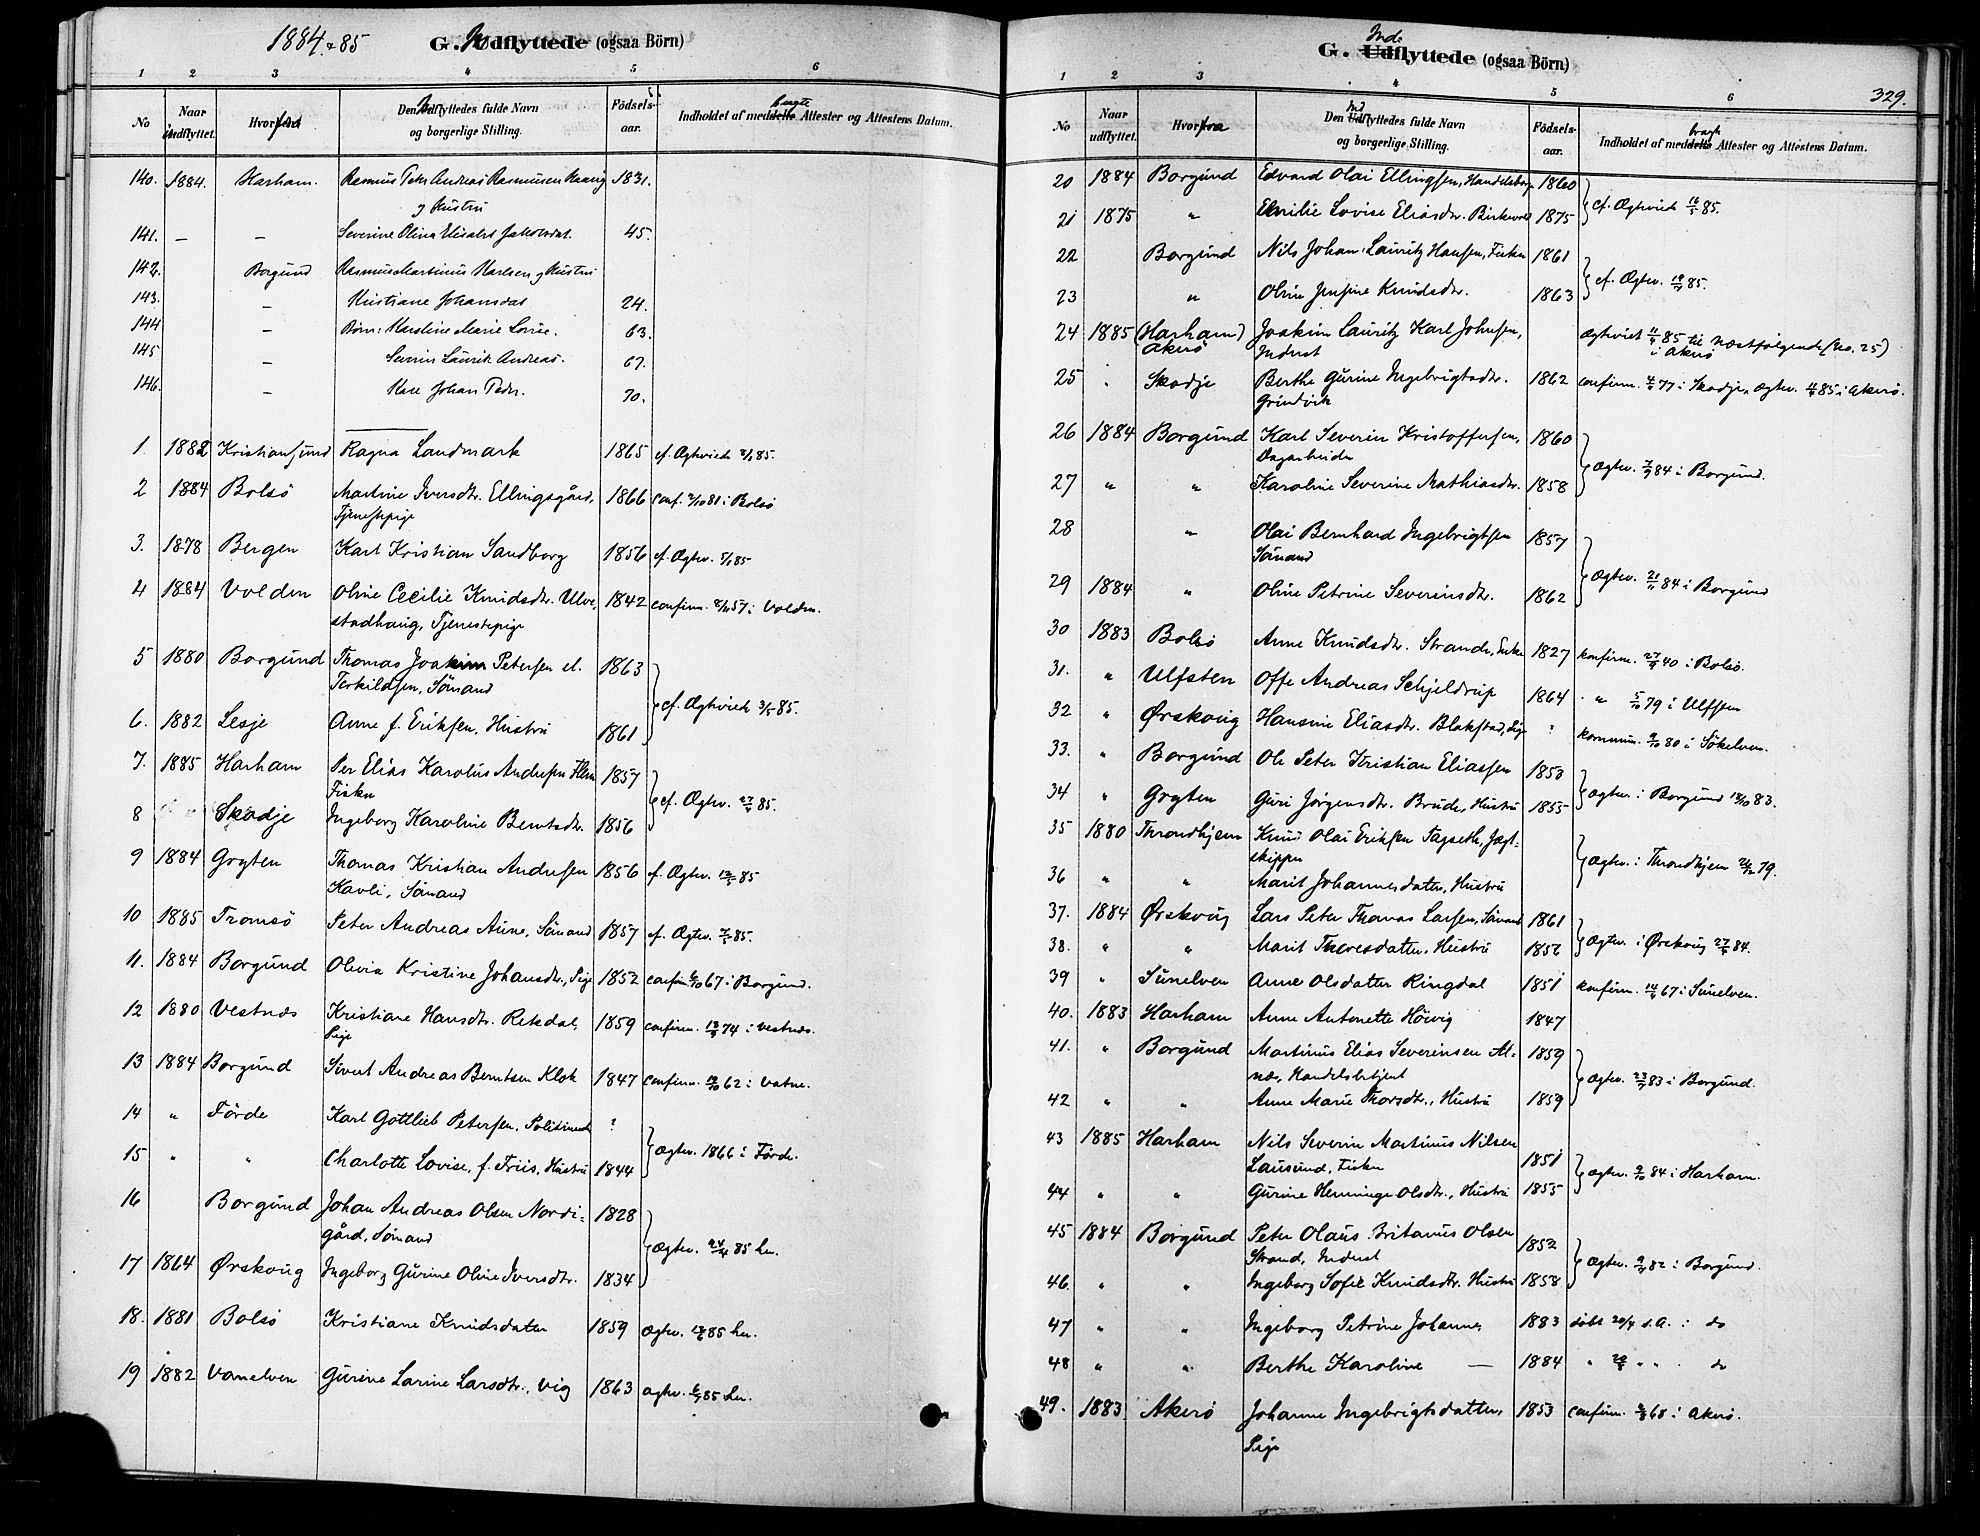 1884 & 85
G. Indflyttede (ogsaa Börn)
1 2 3 4 5 6
No
Naar indflyttet.
Hvorfra
Den Indflyttedes fulde Navn og borgerlige Stilling.
Födsels-aar.
Indholdet af medbragte Attester og Attestens Datum.
140. 1884. Harham. Rasmus Peter Andreas Rasmusen 1831.
g Hustru
141. — — Severine Olina Jakobsdat. 45.
142. Borgund Rasmus Martinus Karlsen g Hustru
143. — Kristiane Johansdat 24.
144 — Börn: Karoline Marie Lovise. 63.
145 — Severin Laurits Andreas. 67.
146. — Johan Peder. 70.
1. 1882 Kristiansund Ragna Landmark 1865 cf. Ægtevied 85.
2 1884 Bolsö Martine Iversdtr. Ellingsgård, 1866 conf. 2/10 81 i Bolsö
Tjenestepige
3. 1878 Bergen Karl Kristian Sandborg 1856 cf. Ægtev. 5/1 85
4 1884 Volden Oline Cecilie Knudsdtr. Ulve- 1842 confirm. 57 i Volden.
stadhaug, Tjenestepige
5 1880 Borgund Thomas Joakim Petersen el. 1863
Terkildsen, Sömand
cf. Ægtevied 3/5 85.
6. 1882 Lesje Anne f. Eriksen, Hustru 1861
7. 1885 Harham Per Elias Karolus Andersen 1857
Fisker
cf. Ægtev. 27/4 85.
8 Skodje Ingeborg Karoline Berntsdtr. 1856
9 1884 Gryten Thomas Kristian Andersen 1856 cf. Ægtev. 85
Kavli, Sömand
10 1885 Tromsö Peter Andreas Aune, Sömand 1857 cf. Ægtev. 7/5 85.
11. 1884 Borgund Olivia Kristine Johansdtr., Pige 1852 confirm 6/10 67 i Borgund.
12 1880 Vestnæs Kristiane Hansdtr. Rekdal, 1859 confirm. 74 i Vestnæs.
Pige
13 1884 Borgund Sivert Andreas Berntsen Klok 1847 confirm. 62 i Vatne.
14 " Förde Karl Gottlieb Petersen, Politimest ?
ægtev. 1866 i Förde.
15 " " Charlotte Lovise, f. Friis, Hustru 1844
16 Borgund Johan Andreas Olsen Nordi- 1828
gård, Sömand
ægtev. 85 her.
17 1864 Ørskoug Ingeborg Gurine Oline Iversdtr. 1834
18. 1881 Bolsö Kristiane Knudsdatter 1859 ægtev. 85 her.
19 1882 Vanelven Gurine Larine Larsdtr., Vig 1863 ægtev. 85 her.
G. Indflyttede (ogsaa Börn)
329.
1 2 3 4 5 6
No
Naar udflyttet.
Hvorfra
Den Indflyttedes fulde Navn og borgerlige Stilling.
Födsels-aar.
Indholdet af medbragte Attester og Attestens Datum.
20 1884 Borgund Edvard Olai Ellingsen, Handelsborg 1860
cf. Ægtevied 16/5 85.
21 1875 " Emilie Lovise Eliasdtr. Birkevold 1875
22 Borgund Nils Johan Lauritz Hansen, Fisker 1861
cf. Ægtev. 85.
23 " Oline Jensine Knudsdtr. 1863
24 1885 (Harham) Joakim Lauritz Karl Johnsen, ægteviet 85 til næstfølgende (No. 25)
Akerö Inderst i Akerö
25 " Skodje Berthe Gurine Ingebrigtsdtr. 1862 confirm. 77 i Skodje, ægtev. 85 i Akerö.
Grindvik
26 1884 Borgund Karl Severin Kristoffersen, 1860
Dagarbeider
ægtev. 84 i Borgund.
27 " " Karoline Severine Mathiasdtr. 1858
28 " Olai Bernhard Ingebrigtsen 1857
Sömand
ægtev. 84 i Borgund
29 1884 " Oline Petrine Severinsdtr. 1862
30 1883 Bolsö Anne Knudsdtr. Strande, Enke 1827 konfirm. 27/9 40 i Bolsö.
31. " Ulfsten Offe Andreas Schjeldrup 1864 " 5/10 79 i Ulfsten
32 " Ørskoug Hansine Eliasdtr. Blakstad, Pige " kommun. 80 i Sökelven.
33. " Borgund Ole Peter Kristian Eliassen 1853
ægtev. i Borgund 83.
34 " Gryten Guri Jørgensdtr. Brude, Hustru 1855
35 1880 Throndhjem Knud Olai Eriksen Fagseth, Jagt-
skipper
ægtev. i Throndhjem 79.
36 " " Marit Johannesdatter, Hustru
37. 1884 Ørskoug Lars Peter Thomas Larsen, Sömand 1861
ægtev. i Ørskoug 84.
38. " " Marit Thoresdatter, Hustru 1856
39 " Sunelven Anne Olsdatter Ringdal 1851 konfirm. 67 i Sunelven.
40. 1883 Harham Anne Antonette Höivig 1847
41. " Borgund Martinus Elias Severinsen Al- 1859
næs, Handelsbetjent
ægtev. 83 i Borgund.
42 " " Anne Marie Thorsdtr., Hustru 1859
43 1885 Harham Nils Severin Martinus Nilsen 1851
Lausund, Fisker
ægtev. 84 i Harham.
44 " " Gurine Henninge Olsdtr., Hustru 1855
45 1884 Borgund Peter Olaus Britanus Olsen 1852
Strand, Inderst
ægtev. 82 i Borgund.
46. " " Ingeborg Sofie Knudsdtr. Hustru 1858
47 " " Ingeborg Petrine Johanne 1883 döbt 20/4 s. A. i do
48 " " Berthe Karoline — 1884 " " " do
49. 1883 Akerö Johanne Ingebrigtsdatter, 1853 confirm. 68 i Akerö.
Pige